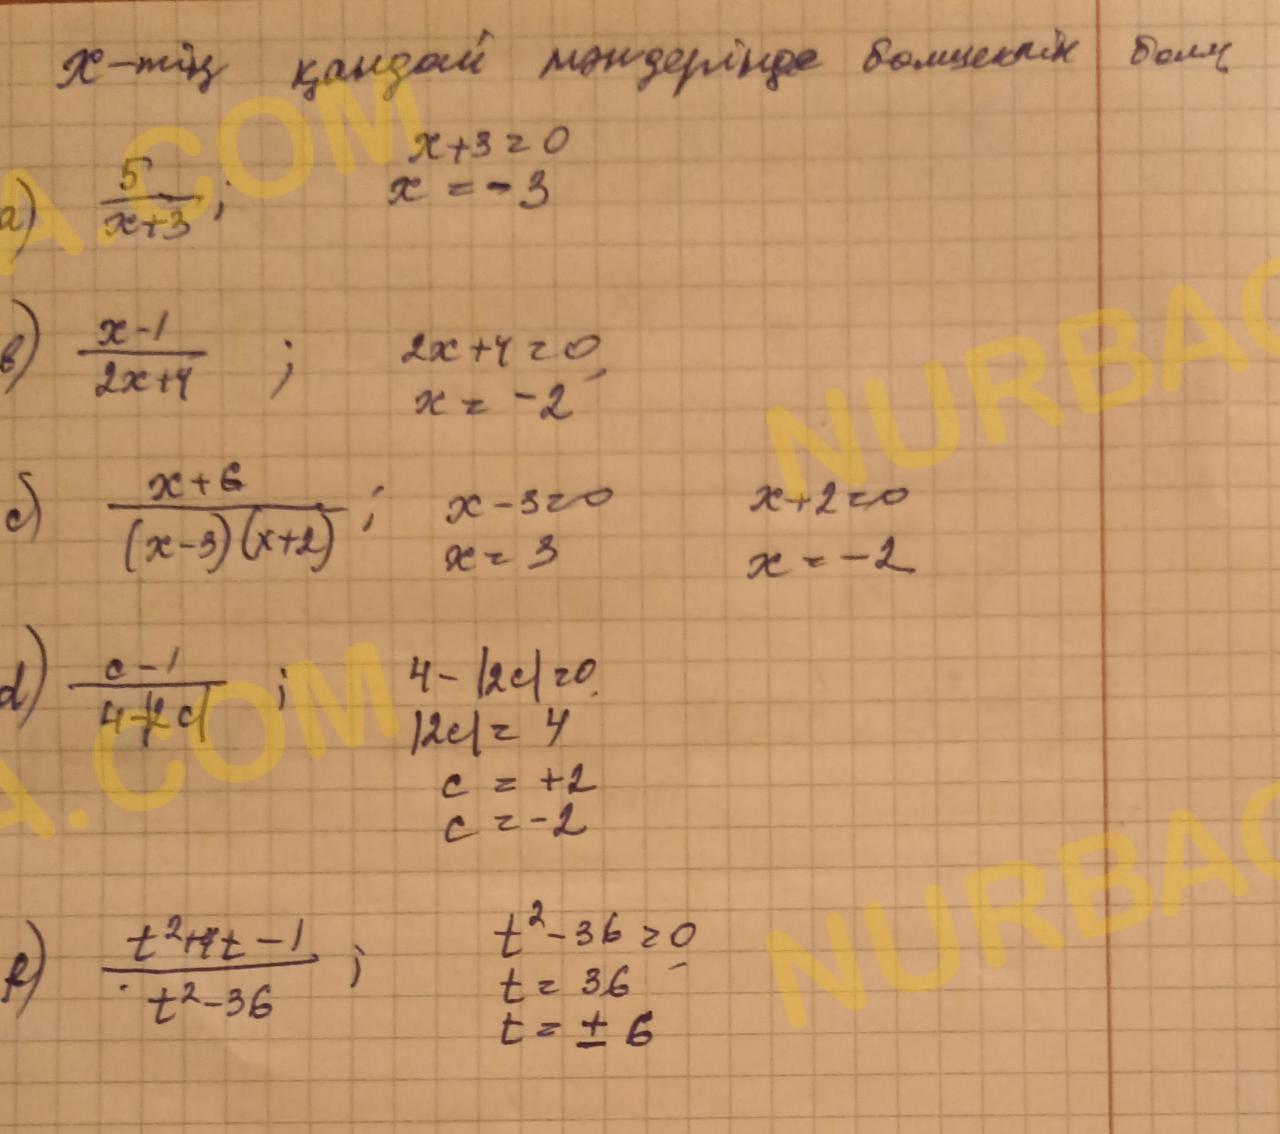 х-тің қандай мәндерінде бөлшектің
a) 5/(x+3); x+3=0
x = -3
в) (x-1)/(2x+4); 2x+4=0
x = -2
c) (x+6)/((x-3)(x+2)); x-3=0 x+2=0
x = 3 x = -2
d) (c-1)/(4-|2c|); 4-|2c|=0
|2c| = 4
c = +2
c = -2
(t²+4t-1)/(t²-36); t²-36=0
t = 36
t = ± 6
A.COM
NURBAG
A.COM
NURBAG